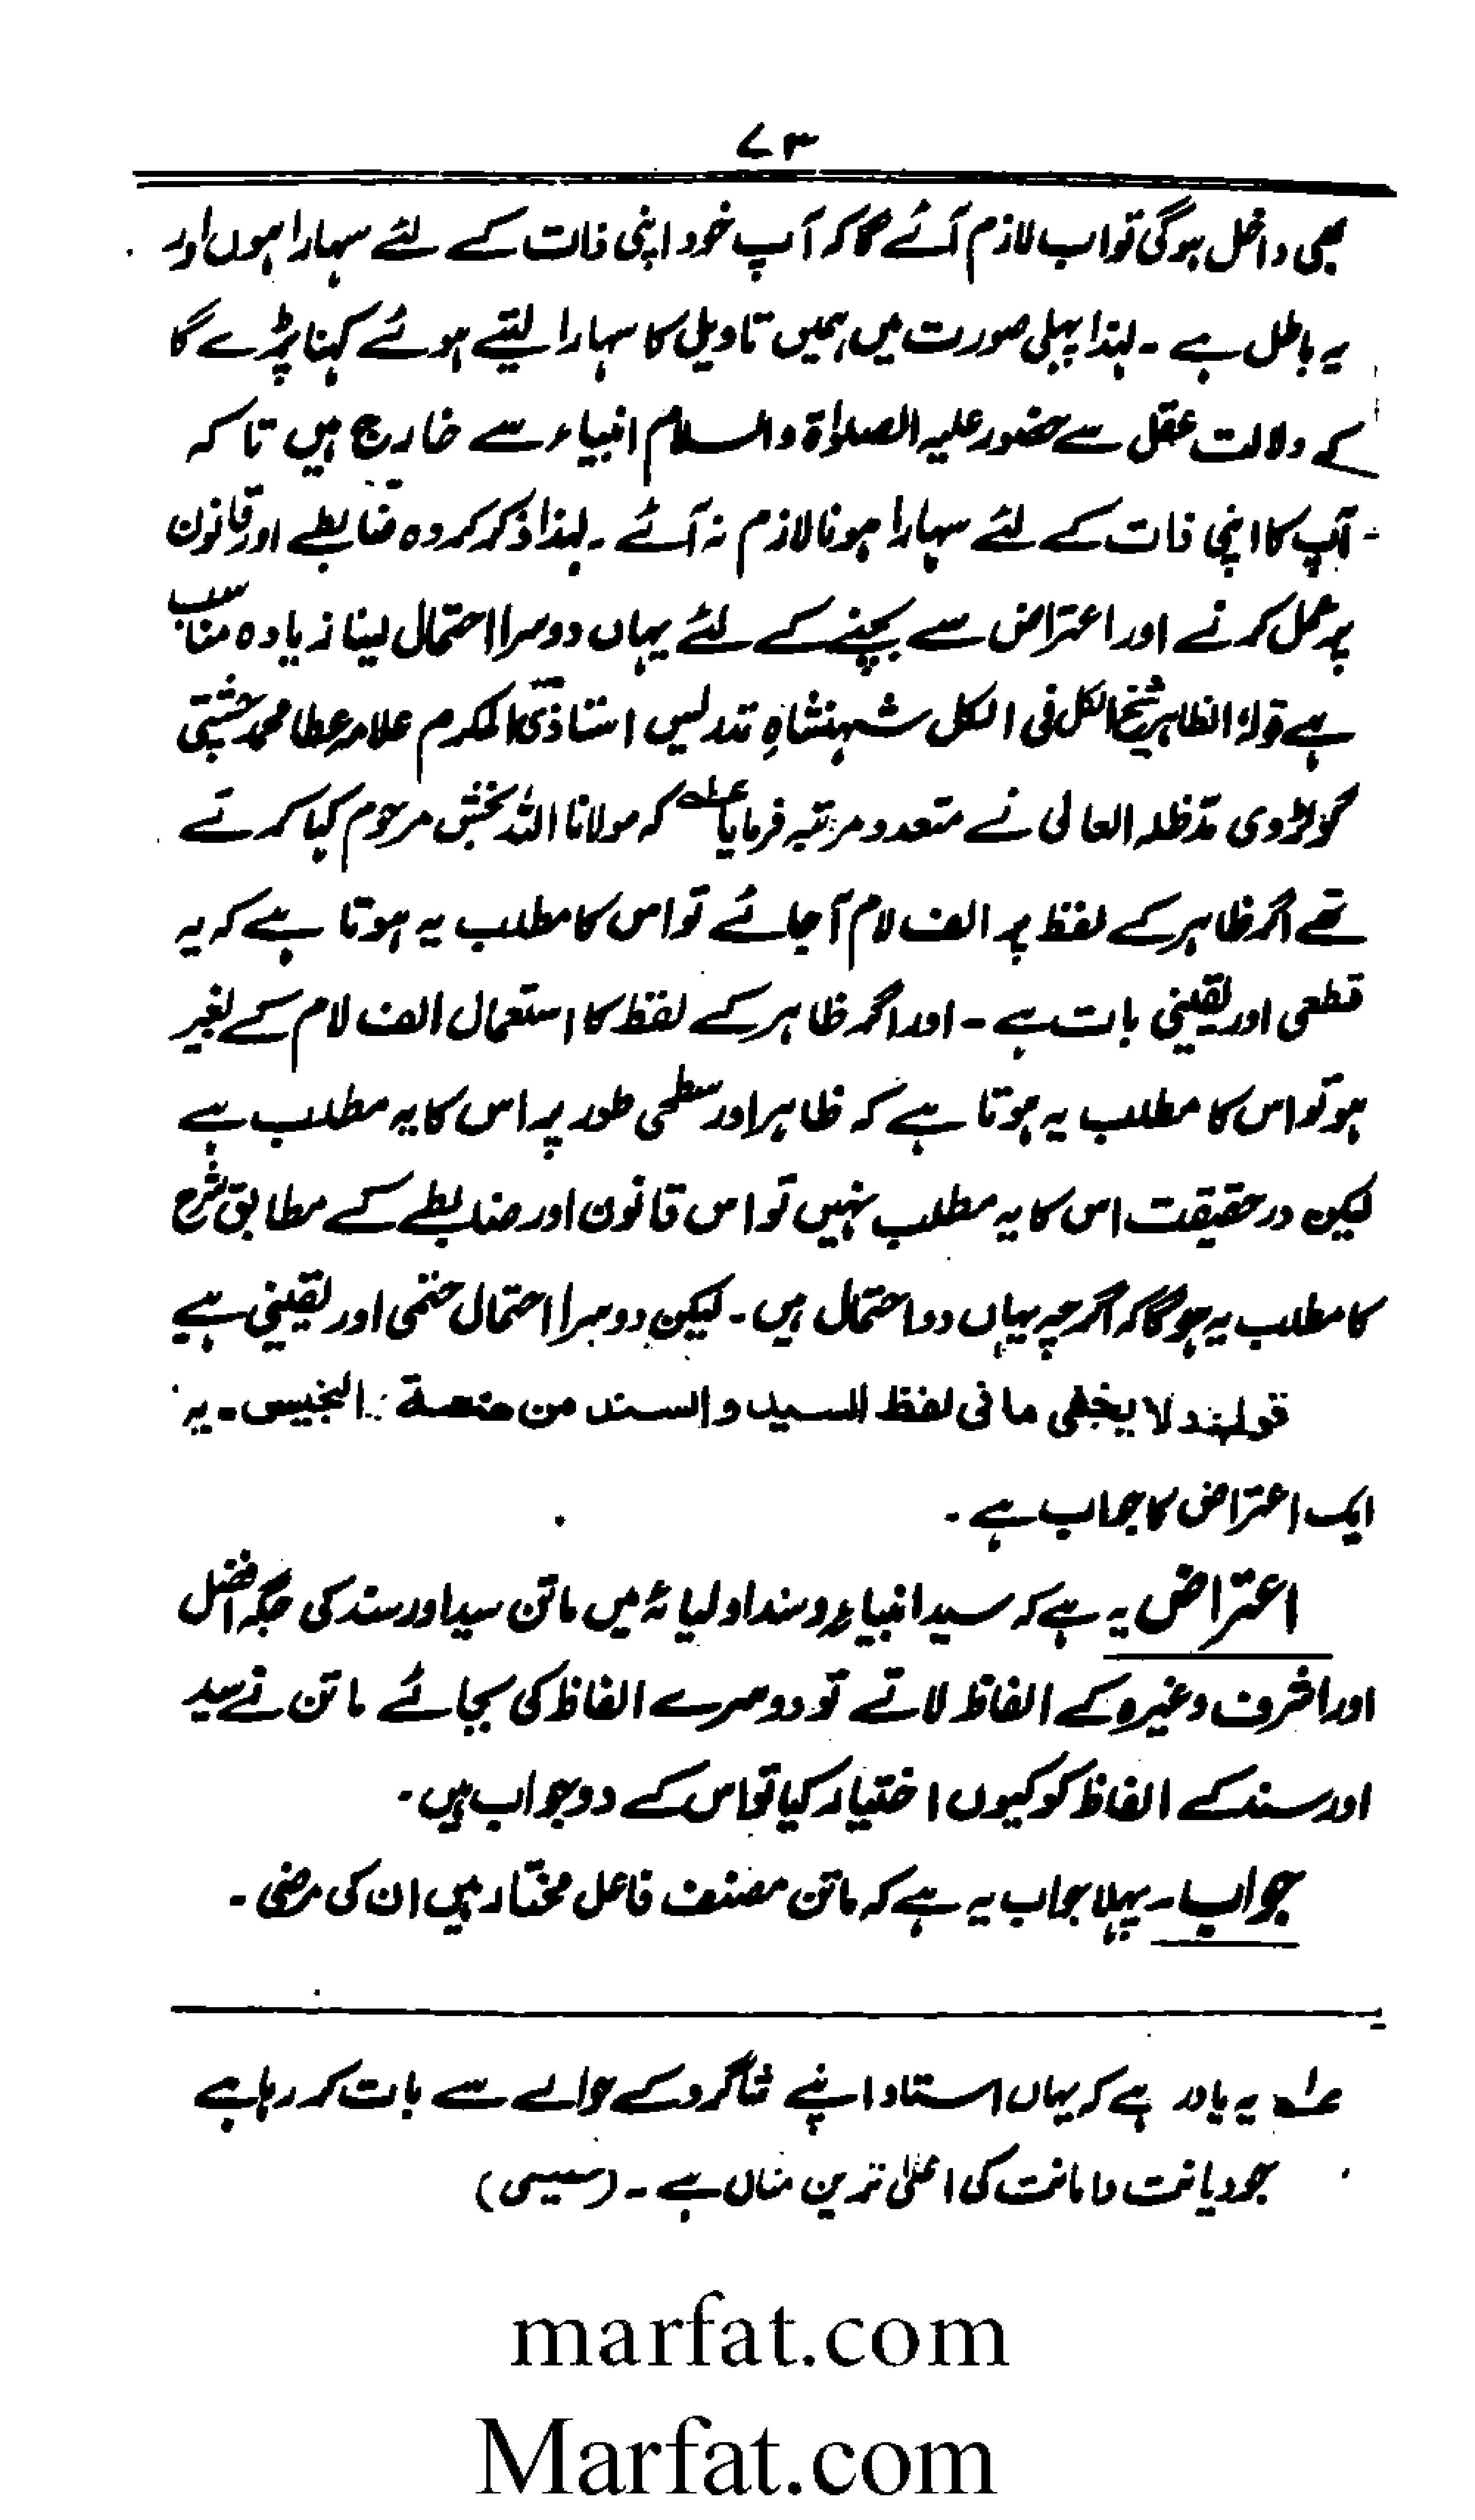 ۷۳
بھی داخل ہوگی تو اب لازم آئے گا کہ آپ خود اپنی ذات کے لئے سہارا ہوں اور
یہ باطل ہے ۔ لہٰذا پہلی صورت میں ہمیں تاویل کا سہارا لیتے ہوئے کہنا پڑے گا
کہ دلالت عقل سے حضور علیہ الصلواۃ والسلام انبیاء سے خارج ہیں تاکہ
آپ کا اپنی ذات کے لئے سہارا ہونا لازم نہ آئے ۔ لہٰذا ذکر کردہ ضابطے اور قانون
پر عمل کرنے اور اعتراض سے بچنے کے لئے یہاں دوسرا احتمال لینا زیادہ مناسب
ہے قولہ الظاہر شیخ الکل فی الکل شہنشاہِ تدریس استاذی المکرم علامہ عطا محمد چشتی
گولڑوی مدظلہ العالی نے متعدد مرتبہ فرمایا عہ کہ مولانا اللہ بخش مرحوم کہا کرتے
تھے اگر ظاہر کے لفظ پر الف لام آجائے تو اس کا مطلب یہ ہوتا ہے کہ یہ
قطعی اور یقینی بات ہے ۔ اور اگر ظاہر کے لفظ کا استعمال الف لام کے بغیر
ہو تو اس کا مطلب یہ ہوتا ہے کہ ظاہر اور سطحی طور پر اس کا یہ مطلب ہے
لیکن درحقیقت اس کا یہ مطلب نہیں تو اس قانون اور ضابطے کے مطابق شرح
کا مطلب یہ ہوگا کہ اگرچہ یہاں دو احتمال ہیں ۔ لیکن دوسرا احتمال حتمی اور یقینی ہے
قولہ لا یخفی ما فی لفظ السید والسند من صنعة التجنیس ۔ یہ
ایک اعتراض کا جواب ہے ۔
اعتراض یہ ہے کہ سید انبیاء و سند اولیائہ میں ماتن سید اور سند کی جگہ افضل
اور اشرف وغیرہ کے الفاظ لاتے تو دوسرے الفاظ کی بجائے ماتن نے سید
اور سند کے الفاظ کو کیوں اختیار کیا تو اس کے دو جواب ہیں ۔
جواب ۔ پہلا جواب یہ ہے کہ ماتن مصنف فاعل مختار ہیں ان کی مرضی ۔
عہ یہ یاد رہے کہ یہاں استاد اپنے شاگرد کے حوالے سے بات کر رہا ہے
جو دیانت و امانت کی اعلیٰ ترین مثال ہے ۔ (سعیدی)
marfat.com
Marfat.com